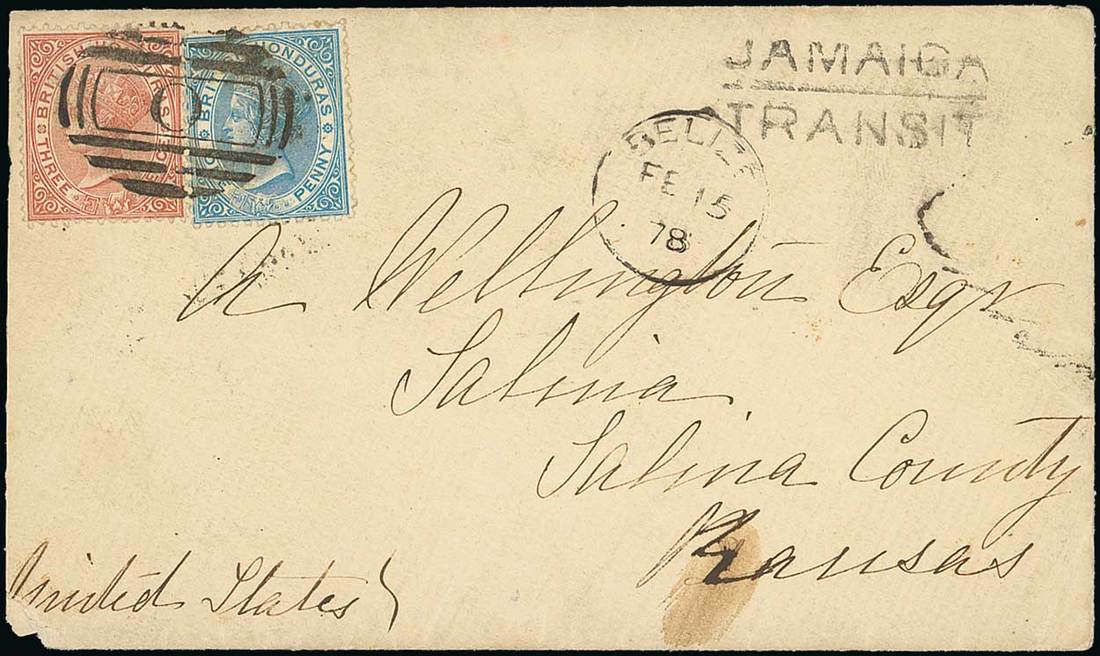 BRITISH HONDURAS
THREE
HONDURAS
PENNY
JAMAICA
TRANSIT
BELIZE
FE 15
78
A Wellington Esqr
Salina
Salina County
Kansas
United States